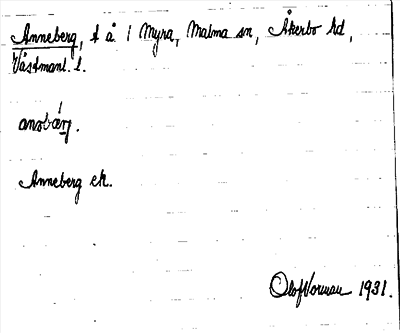 Anneberg, t å 1 Myra, Malma sn, Åkerbo hd,
Västmanl. l.
ansbærj.
Anneberg ek.
Olof Norman 1931.